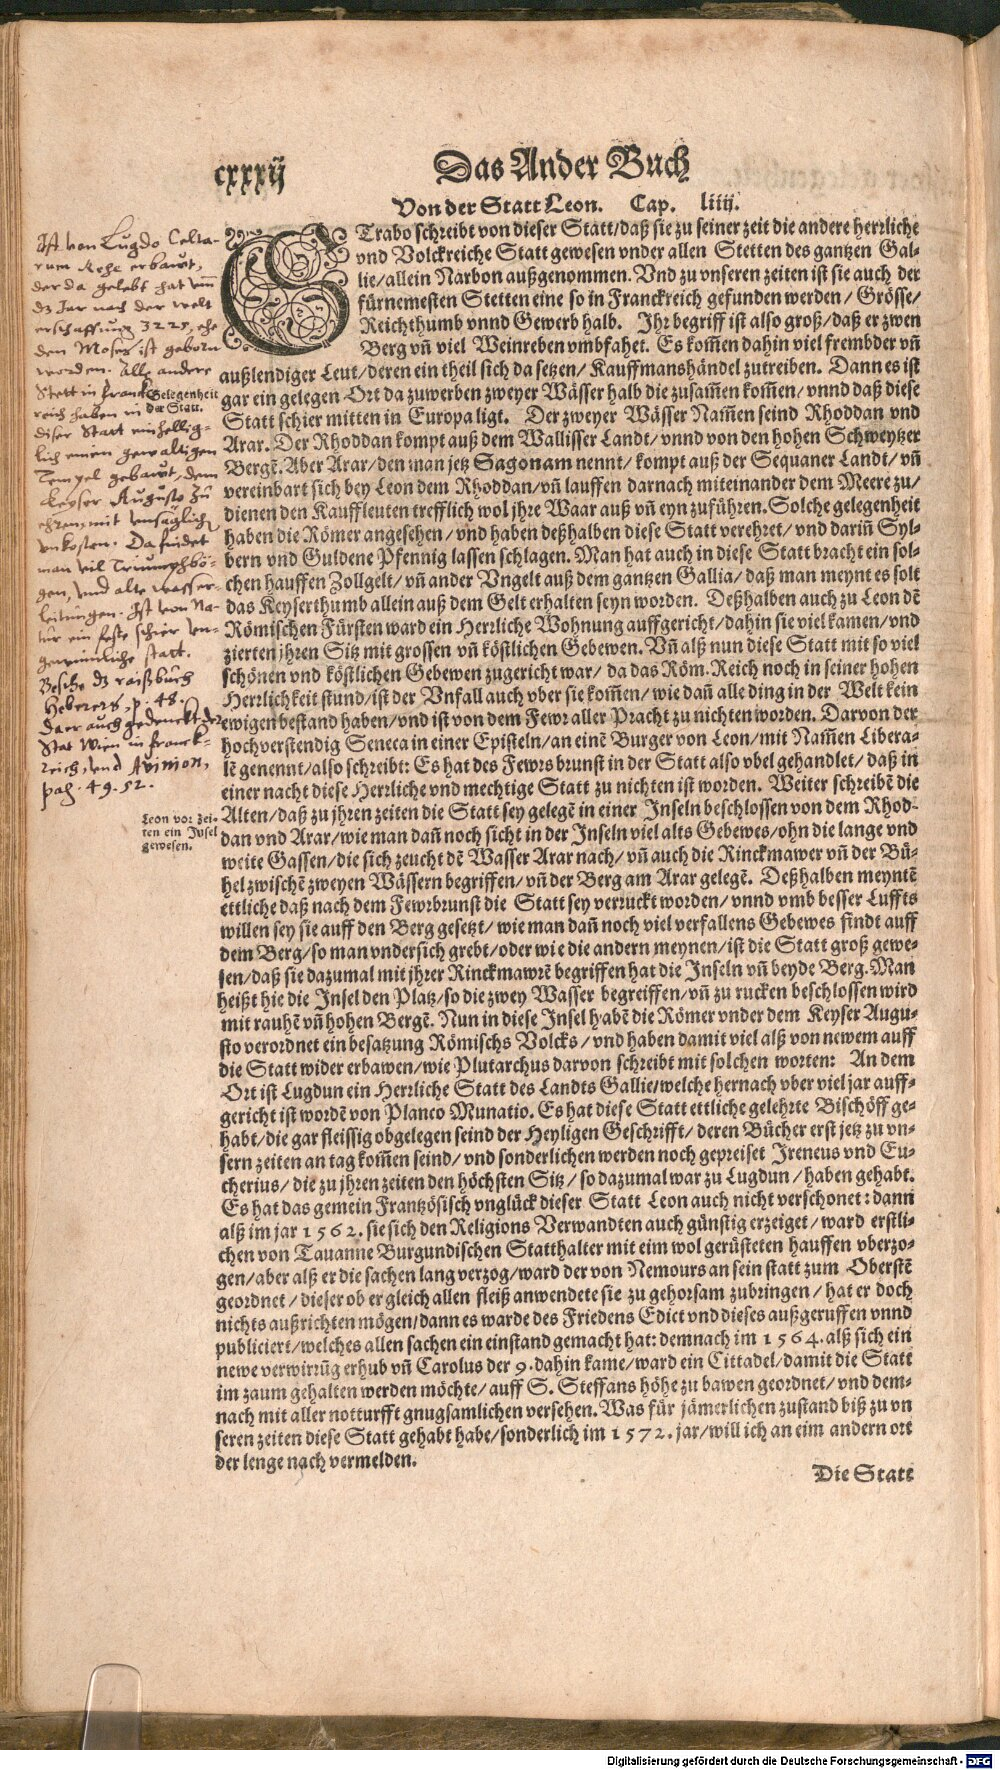 cxxxij
Das Ander Buch
Von der Statt Leon. Cap. liiij.
STrabo schreibt von dieser Statt/daß sie zu seiner zeit die andere herrliche
vnd Volckreiche Statt gewesen vnder allen Stetten des gantzen Gal-
lie/allein Narbon außgenommen. Vnd zu vnseren zeiten ist sie auch der
fürnemesten Stetten eine so in Franckreich gefunden werden/ Grösse/
Reichthumb vnnd Gewerb halb. Ihr begriff ist also groß/daß er zwen
Berg vñ viel Weinreben vmbfahet. Es kom̃en dahin viel frembder vñ
außlendiger Leut/deren ein theil sich da setzen/ Kauffmanshändel zutreiben. Dann es ist
gar ein gelegen Ort da zuwerben zweyer Wässer halb die zusam̃en kom̃en/ vnnd daß diese
Statt schier mitten in Europa ligt. Der zweyer Wässer Nam̃en seind Rhoddan vnd
Arar. Der Rhoddan kompt auß dem Wallisser Landt/ vnnd von den hohen Schweytzer
Bergẽ. Aber Arar/den man jetz Sagonam nennt/ kompt auß der Sequaner Landt/ vñ
vereinbart sich bey Leon dem Rhoddan/vñ lauffen darnach miteinander dem Meere zu/
dienen den Kauffleuten trefflich wol jhre Waar auß vñ eyn zuführen. Solche gelegenheit
haben die Römer angesehen/ vnd haben deßhalben diese Statt verehret/ vnd dariñ Syl-
bern vnd Guldene Pfennig lassen schlagen. Man hat auch in diese Statt bracht ein sol-
chen hauffen Zollgelt/ vñ ander Vngelt auß dem gantzen Gallia/ daß man meynt es solt
das Keyserthumb allein auß dem Gelt erhalten seyn worden. Deßhalben auch zu Leon dẽ
Römischen Fürsten ward ein Herrliche Wohnung auffgericht/dahin sie viel kamen/vnd
zierten jhren Sitz mit grossen vñ köstlichen Gebewen. Vñ alß nun diese Statt mit so viel
schönen vnd köstlichen Gebewen zugericht war/ da das Röm. Reich noch in seiner hohen
Herrlichkeit stund/ist der Vnfall auch vber sie kom̃en/ wie dañ alle ding in der Welt kein
ewigen bestand haben/vnd ist von dem Fewr aller Pracht zu nichten worden. Darvon der
hochverstendig Seneca in einer Episteln/an einẽ Burger von Leon/mit Nam̃en Libera-
lẽ genennt/also schreibt: Es hat des Fewrs brunst in der Statt also vbel gehandlet/ daß in
einer nacht diese Herrliche vnd mechtige Statt zu nichten ist worden. Weiter schreibẽ die
Alten/daß zu jhren zeiten die Statt sey gelegẽ in einer Inseln beschlossen von dem Rhod-
dan vnd Arar/wie man dañ noch sicht in der Inseln viel alts Gebewes/ohn die lange vnd
weite Gassen/die sich zeucht dẽ Wasser Arar nach/ vñ auch die Rinckmawer vñ der Bü-
hel zwischẽ zweyen Wässern begriffen/ vñ der Berg am Arar gelegẽ. Deßhalben meyntẽ
ettliche daß nach dem Fewrbrunst die Statt sey verruckt worden/ vnnd vmb besser Luffts
willen sey sie auff den Berg gesetzt/ wie man dañ noch viel verfallens Gebewes findt auff
dem Berg/so man vndersich grebt/oder wie die andern meynen/ ist die Statt groß gewe-
sen/daß sie dazumal mit jhrer Rinckmawrẽ begriffen hat die Inseln vñ beyde Berg. Man
heißt hie die Insel den Platz/so die zwey Wasser begreiffen/vñ zu rucken beschlossen wird
mit rauhẽ vñ hohen Bergẽ. Nun in diese Insel habẽ die Römer vnder dem Keyser Augu-
sto verordnet ein besatzung Römischs Volcks/ vnd haben damit viel alß von newem auff
die Statt wider erbawen/wie Plutarchus darvon schreibt mit solchen worten: An dem
Ort ist Lugdun ein Herrliche Statt des Landts Gallie/welche hernach vber viel jar auff-
gericht ist wordẽ von Planco Munatio. Es hat diese Statt ettliche gelehrte Bischöff ge-
habt/die gar fleissig obgelegen seind der Heyligen Geschrifft/ deren Bücher erst jetz zu vn-
sern zeiten an tag kom̃en seind/ vnd sonderlichen werden noch gepreiset Ireneus vnd Eu-
cherius/ die zu jhren zeiten den höchsten Sitz/ so dazumal war zu Lugdun/ haben gehabt.
Es hat das gemein Frantzösisch vnglück dieser Statt Leon auch nicht verschonet: dann
alß im jar 1562. sie sich den Religions Verwandten auch günstig erzeiget/ ward erstli-
chen von Tauanne Burgundischen Statthalter mit eim wol gerüsteten hauffen vberzo-
gen/aber alß er die sachen lang verzog/ward der von Nemours an sein statt zum Oberstẽ
geordnet/ dieser ob er gleich allen fleiß anwendete sie zu gehorsam zubringen/ hat er doch
nichts außrichten mögen/dann es warde des Friedens Edict vnd dieses außgeruffen vnnd
publiciert/welches allen sachen ein einstand gemacht hat: demnach im 1564. alß sich ein
newe verwirrũg erhub vñ Carolus der 9. dahin kame/ward ein Cittadel/damit die Statt
im zaum gehalten werden möchte/ auff S. Steffans höhe zu bawen geordnet/ vnd dem-
nach mit aller notturfft gnugsamlichen versehen. Was für jämerlichen zustand biß zu vn
seren zeiten diese Statt gehabt habe/sonderlich im 1572. jar/will ich an eim andern ort
der lenge nach vermelden.
Die Statt
Gelegenheit
der Statt.
Leon vor zei-
ten ein Insel
gewesen.
Ist von Lugdo Celta-
rum Rege erbawt,
der da gelebt hat vm̃
dz Jar nach der welt
erschaffung 3225, ehe
den Moses ist geborn
worden. Alle andere
Stett in Franck-
reich haben in
diser Statt einhellig-
lich einen gewaltigen
Tempel gebawt, dem
Keyser Augusto zů
ehren, mit vnsäglich
vnkosten. Da findet
man vil Triumphbö-
gen, vnd alte wasser-
leitungen. Ist von Na-
tur ein feste schier vn-
gewinnliche statt.
Besihe dz raißbuch
Heberers, p. 48.
da er auch gedenckt der
Stat Wien in Franck-
reich, vnd Avinion,
pag. 49. 52.